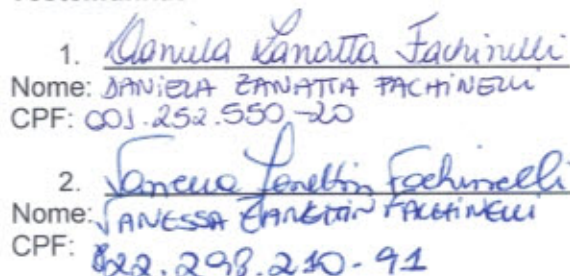 1. Daniela Zanatta Fachinelli
Nome: DANIELA ZANATTA FACHINELLI
CPF: 001.252.550-20
2. Vanessa Zanettin Fachinelli
Nome: VANESSA ZANETTIN FACCHINELLI
CPF: 822.298.210-91